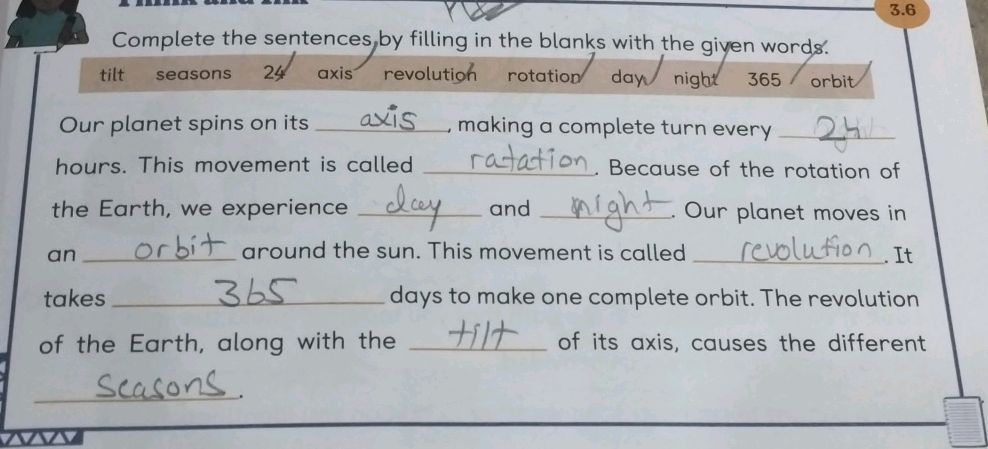 Think and Ink
3.6
Complete the sentences by filling in the blanks with the given words.
tilt seasons 24 axis revolution rotation day night 365 orbit
Our planet spins on its axis, making a complete turn every 24
hours. This movement is called ratation. Because of the rotation of
the Earth, we experience day and night. Our planet moves in
an orbit around the sun. This movement is called revolution. It
takes 365 days to make one complete orbit. The revolution
of the Earth, along with the tilt of its axis, causes the different
seasons.